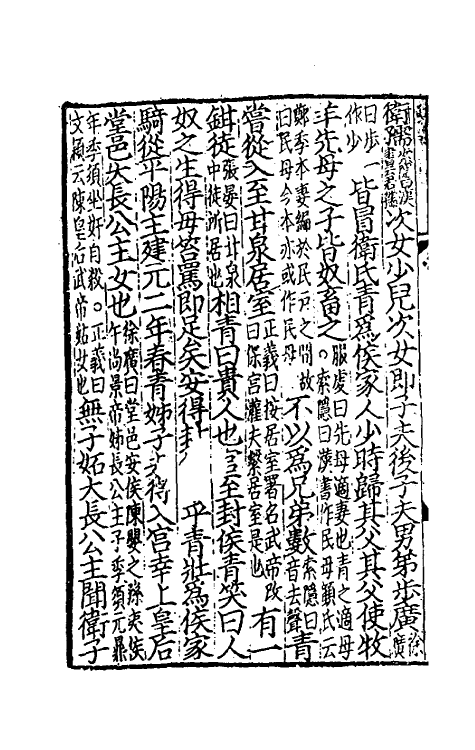 衛孺徐廣曰漢書云君孺次女少兒次女即子夫後子夫男弟步廣徐廣
曰步一作少皆冒衛氏青爲侯家人少時歸其父其父使牧
羊先母之子皆奴畜之服虔曰先母適妻也青之適母。索隱曰漢書作民母顧氏云
鄭季本妻編於民戶之間故曰民母今本亦或作民母不以爲兄弟數索隱曰音去聲青
嘗從入至甘泉居室正義曰按居室署名武帝改曰保宫灌夫繫居室是也有一
鉗徒張晏曰甘泉中徒所居也相青曰貴人也官至封侯青笑曰人
奴之生得毋笞罵即足矣安得封 乎青壯爲侯家
騎從平陽主建元二年春青姊子夫得入宫幸上皇后
堂邑大長公主女也徐廣曰堂邑安侯陳嬰之孫夷侯午尚景帝姊長公主子季須元鼎
年季須坐奸自殺。正義曰文穎云陳皇后武帝姑女也無子妬大長公主聞衛子